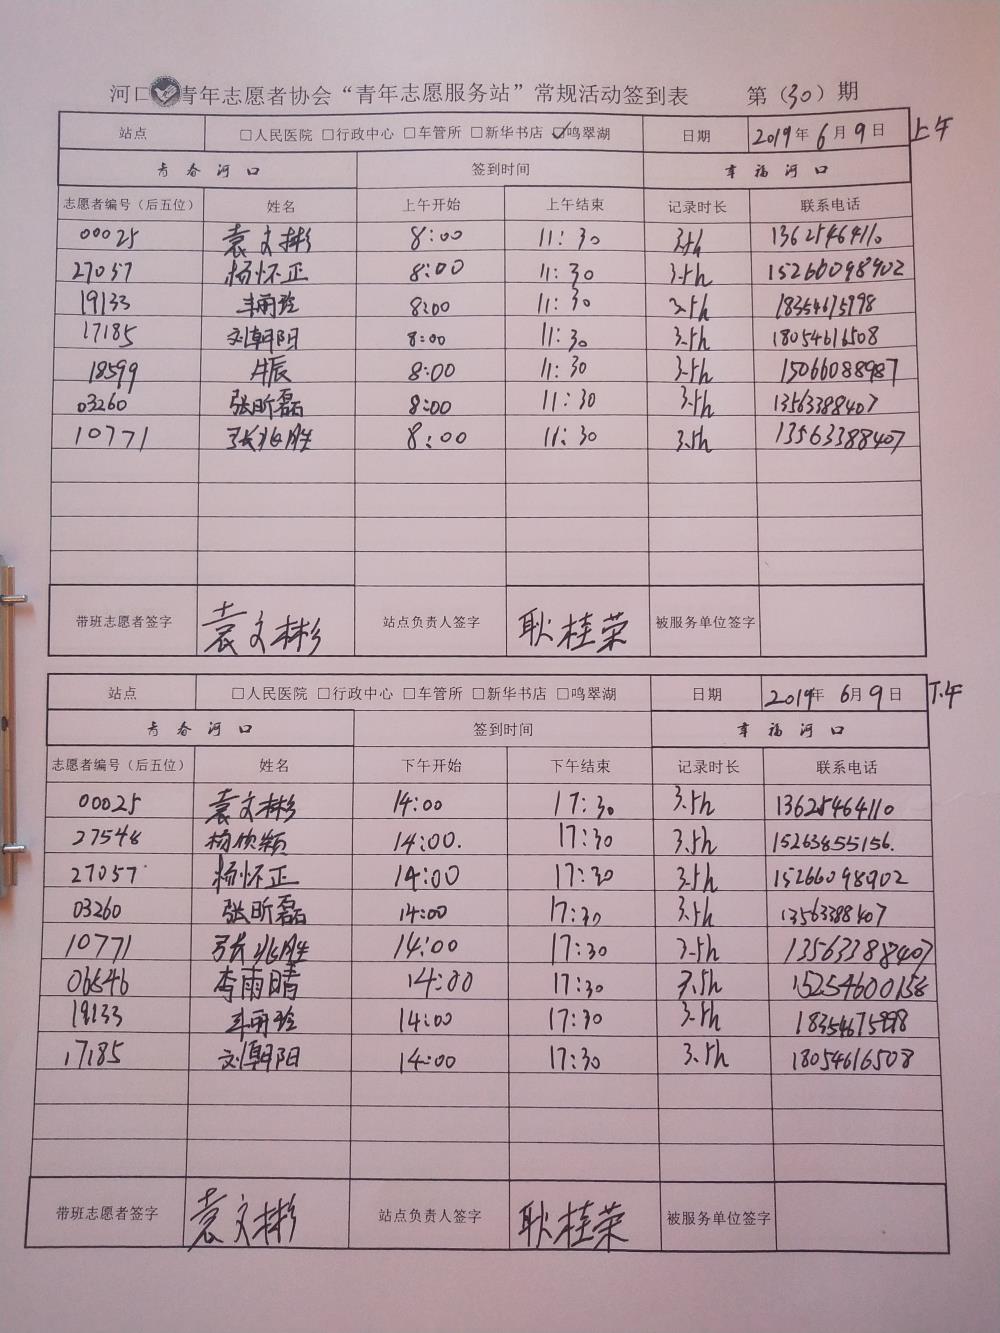 河口青年志愿者协会“青年志愿服务站”常规活动签到表 第（30）期
站点 □人民医院 □行政中心 □车管所 □新华书店 ☑鸣翠湖 日期 2019年6月9日 上午
青春河口 签到时间 幸福河口
志愿者编号（后五位） 姓名 上午开始 上午结束 记录时长 联系电话
00025 袁文彬 8:00 11:30 3.5h 13625464110
27057 杨怀正 8:00 11:30 3.5h 15266098902
19133 8:00 11:30 3.5h 18354675998
17185 刘朝阳 8:00 11:30 3.5h 18054616508
18599 8:00 11:30 3.5h 15066088987
03260 张昕磊 8:00 11:30 3.5h 13563388407
10771 张兆胜 8:00 11:30 3.5h 13563388407
带班志愿者签字 袁文彬 站点负责人签字 耿桂荣 被服务单位签字
站点 □人民医院 □行政中心 □车管所 □新华书店 □鸣翠湖 日期 2019年6月9日 下午
青春河口 签到时间 幸福河口
志愿者编号（后五位） 姓名 下午开始 下午结束 记录时长 联系电话
00025 袁文彬 14:00 17:30 3.5h 13625464110
27548 杨欣颖 14:00. 17:30 3.5h 15263855156.
27057 杨怀正 14:00 17:30 3.5h 15266098902
03260 张昕磊 14:00 17:30 3.5h 13563388407
10771 张兆胜 14:00 17:30 3.5h 13563388407
06646 李雨晴 14:00 17:30 3.5h 15254600158
19133 14:00 17:30 3.5h 18354675998
17185 刘朝阳 14:00 17:30 3.5h 18054616508
带班志愿者签字 袁文彬 站点负责人签字 耿桂荣 被服务单位签字